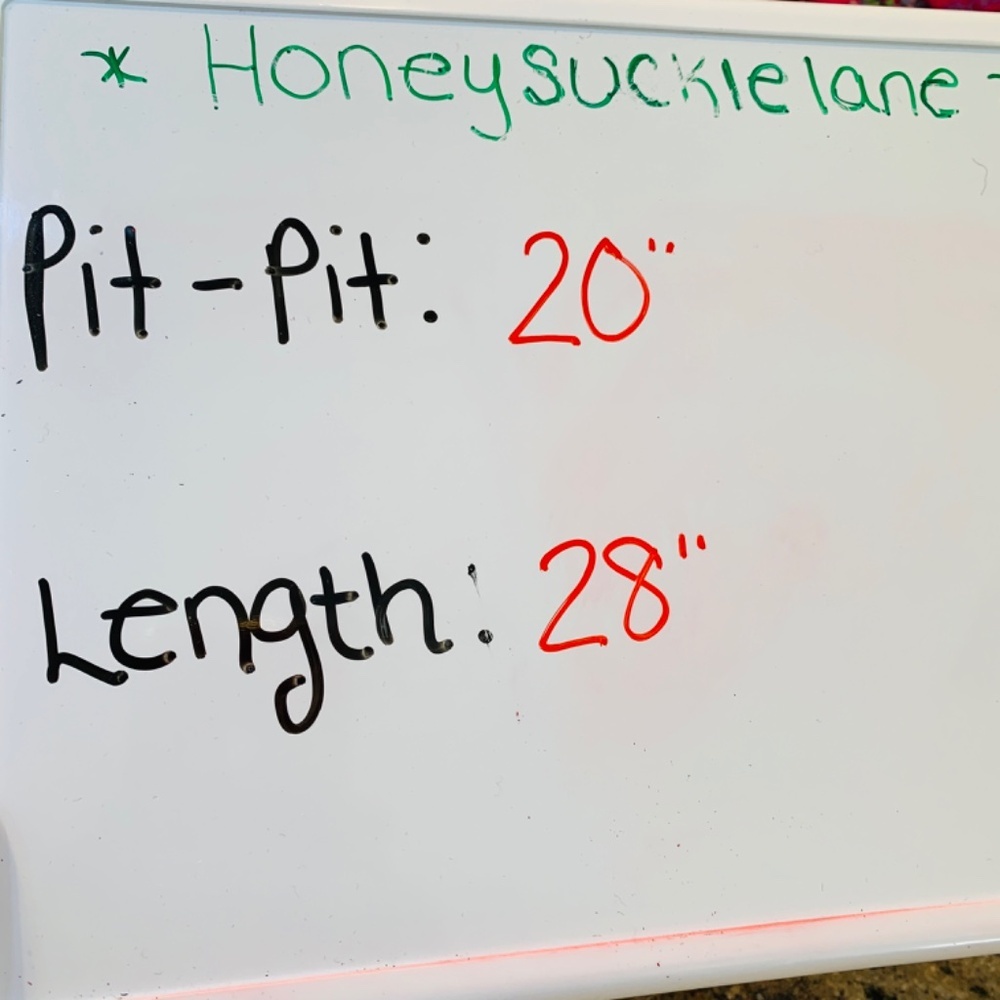 * Honeysucklelane -
Pit-Pit: 20"
Length: 28"